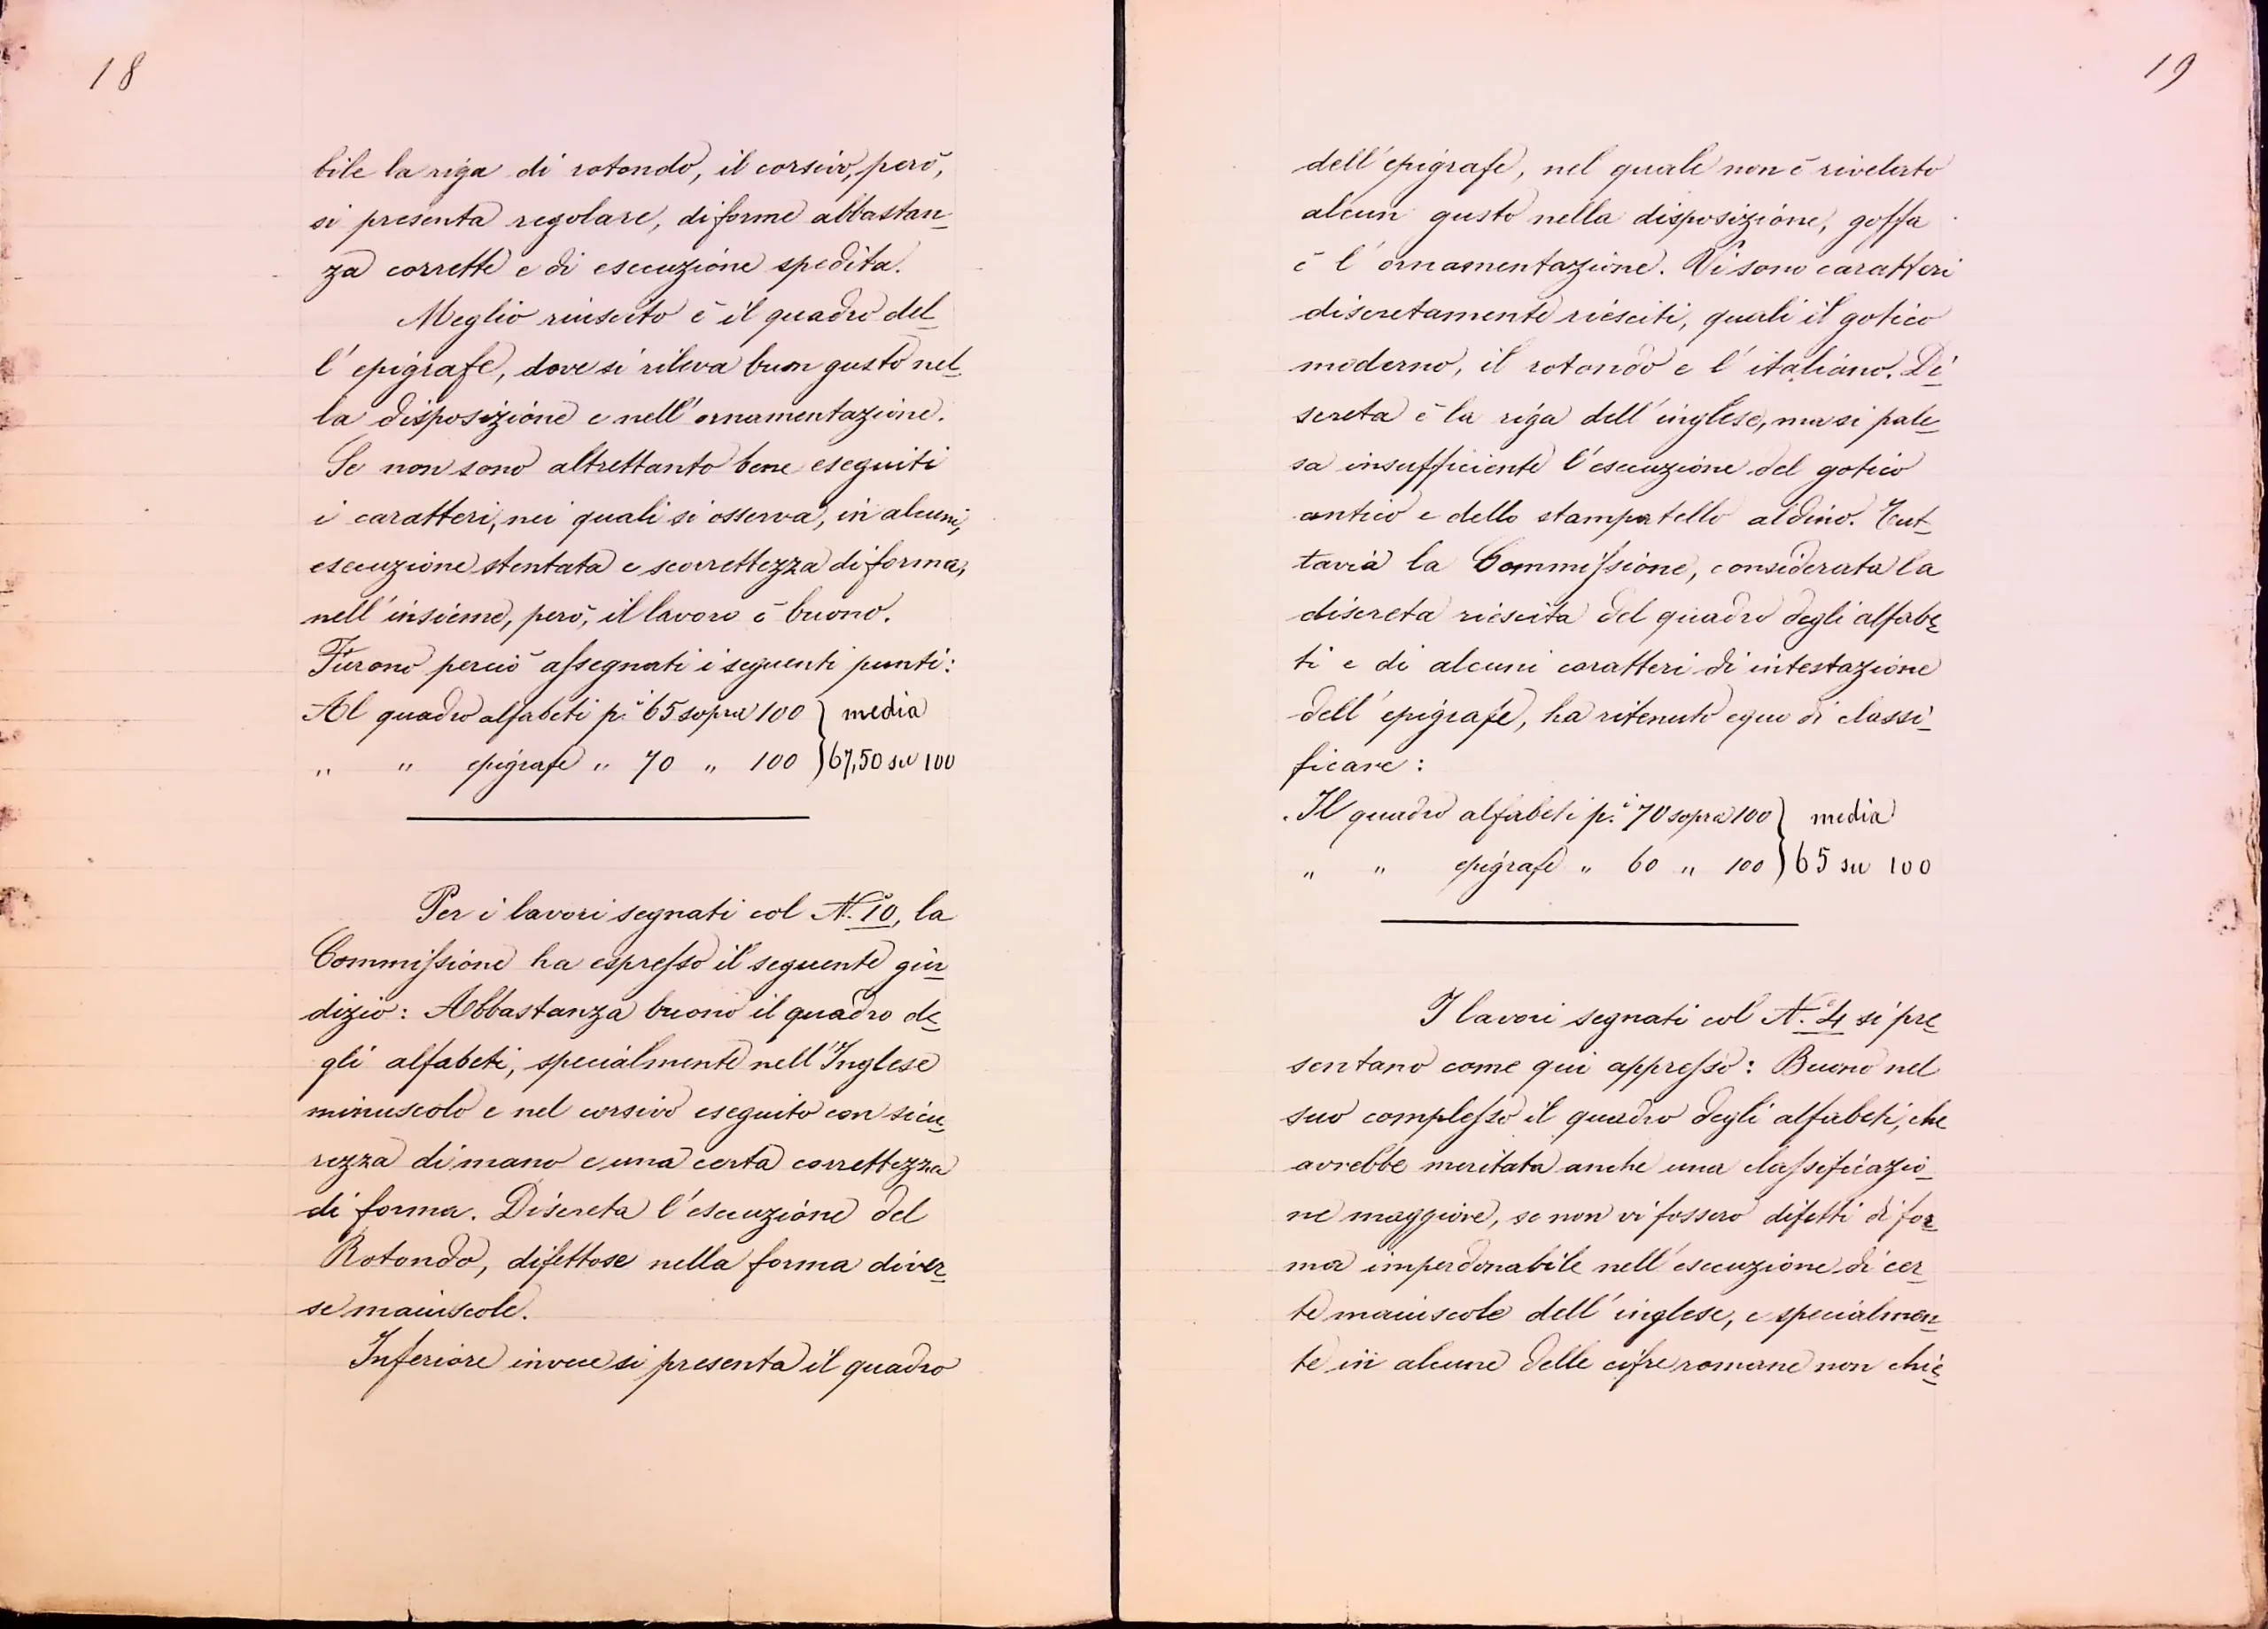 18
bile la riga di rotondo, il corsivo, però,
si presenta regolare, di forme abbastan-
za corrette e di esecuzione spedita.
Meglio riuscito è il quadro del-
l'epigrafe, dove si rileva buon gusto nel-
la disposizione e nell'ornamentazione.
Se non sono altrettanto bene eseguiti
i caratteri, nei quali si osserva, in alcuni,
esecuzione stentata e scorrettezza di forma,
nell'insieme, però, il lavoro è buono.
Furono perciò assegnati i seguenti punti:
Al quadro alfabeti p.i 65 sopra 100 } media
" " epigrafe " 70 " 100 } 67,50 su 100
Per i lavori segnati col N.° 10, la
Commissione ha espresso il seguente giu-
dizio: Abbastanza buono il quadro de-
gli alfabeti, specialmente nell'Inglese
minuscolo e nel corsivo eseguito con sicu-
rezza di mano e una certa correttezza
di forma. Discreta l'esecuzione del
Rotondo, difettose nella forma diver-
se maiuscole.
Inferiore invece si presenta il quadro
19
dell'epigrafe, nel quale non è rivelato
alcun gusto nella disposizione, goffa
è l'ornamentazione. Vi sono caratteri
discretamente riesciti, quali il gotico
moderno, il rotondo e l'italiano. Di-
screta è la riga dell'inglese, ma si pale-
sa insufficiente l'esecuzione del gotico
antico e dello stampatello aldino. Tut-
tavia la Commissione, considerata la
discreta riescita del quadro degli alfabe-
ti e di alcuni caratteri di intestazione
dell'epigrafe, ha ritenuto equo di classi-
ficare:
Il quadro alfabeti p.i 70 sopra 100 } media
" " epigrafe " 60 " 100 } 65 su 100
I lavori segnati col N.° 4 si pre-
sentano come qui appresso: Buono nel
suo complesso il quadro degli alfabeti, che
avrebbe meritata anche una classificazio-
ne maggiore, se non vi fossero difetti di for-
ma imperdonabile nell'esecuzione di cer-
te maiuscole dell'inglese, e specialmen-
te in alcune delle cifre romane non chie-